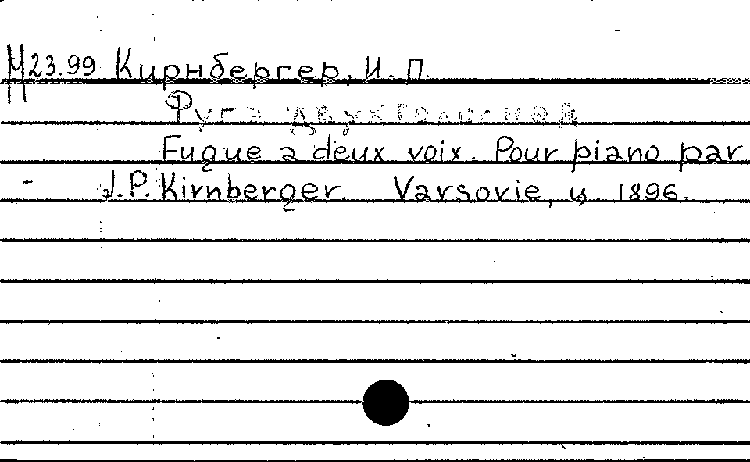 М23.99 Кирнбергер, И. П.
Фуга двухголосная
Fugue a deux voix. Pour piano par
J.P. Kirnberger. Varsovie, ц. 1896.